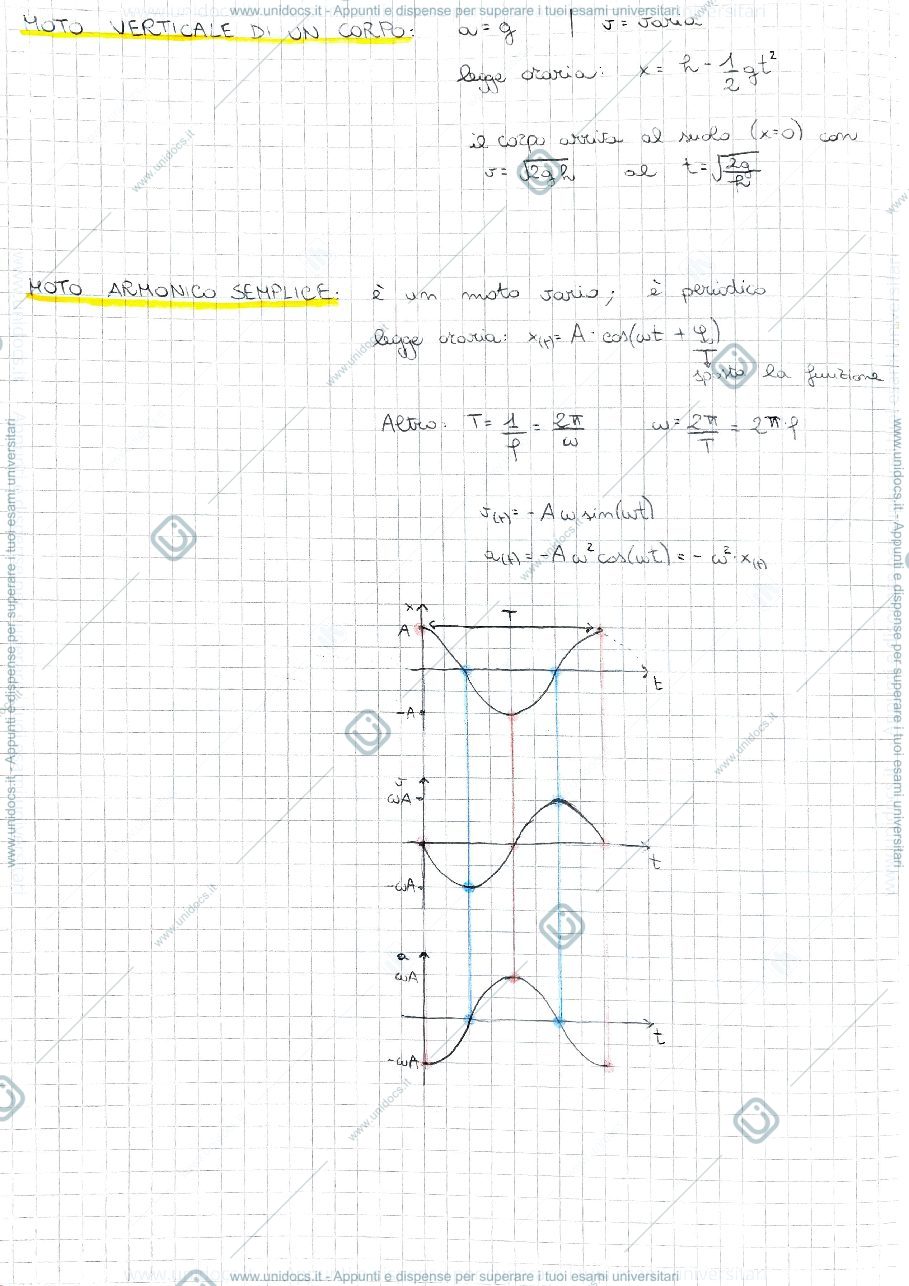 www.unidocs.it - Appunti e dispense per superare i tuoi esami universitari
MOTO VERTICALE DI UN CORPO: a = g | v = varia
legge oraria: x = h - 1/2 gt²
il corpo arriva al suolo (x=0) con
v = √2gh al t = √2g/h
MOTO ARMONICO SEMPLICE: è un moto vario; è periodico
legge oraria: x(t) = A · cos(ωt + φ₀)
sposta la funzione
Altro: T = 1/f = 2π/ω ω = 2π/T = 2π·f
v(t) = -Aω sin(ωt)
a(t) = -Aω² cos(ωt) = -ω²·x(t)
x T
A
t
-A
v
ωA
t
-ωA
a
ωA
t
-ωA
www.unidocs.it
www.unidocs.it
www.unidocs.it
www.unidocs.it
www.unidocs.it
www.unidocs.it
www.unidocs.it - Appunti e dispense per superare i tuoi esami universitari
www.unidocs.it - Appunti e dispense per superare i tuoi esami universitari
www.unidocs.it - Appunti e dispense per superare i tuoi esami universitari